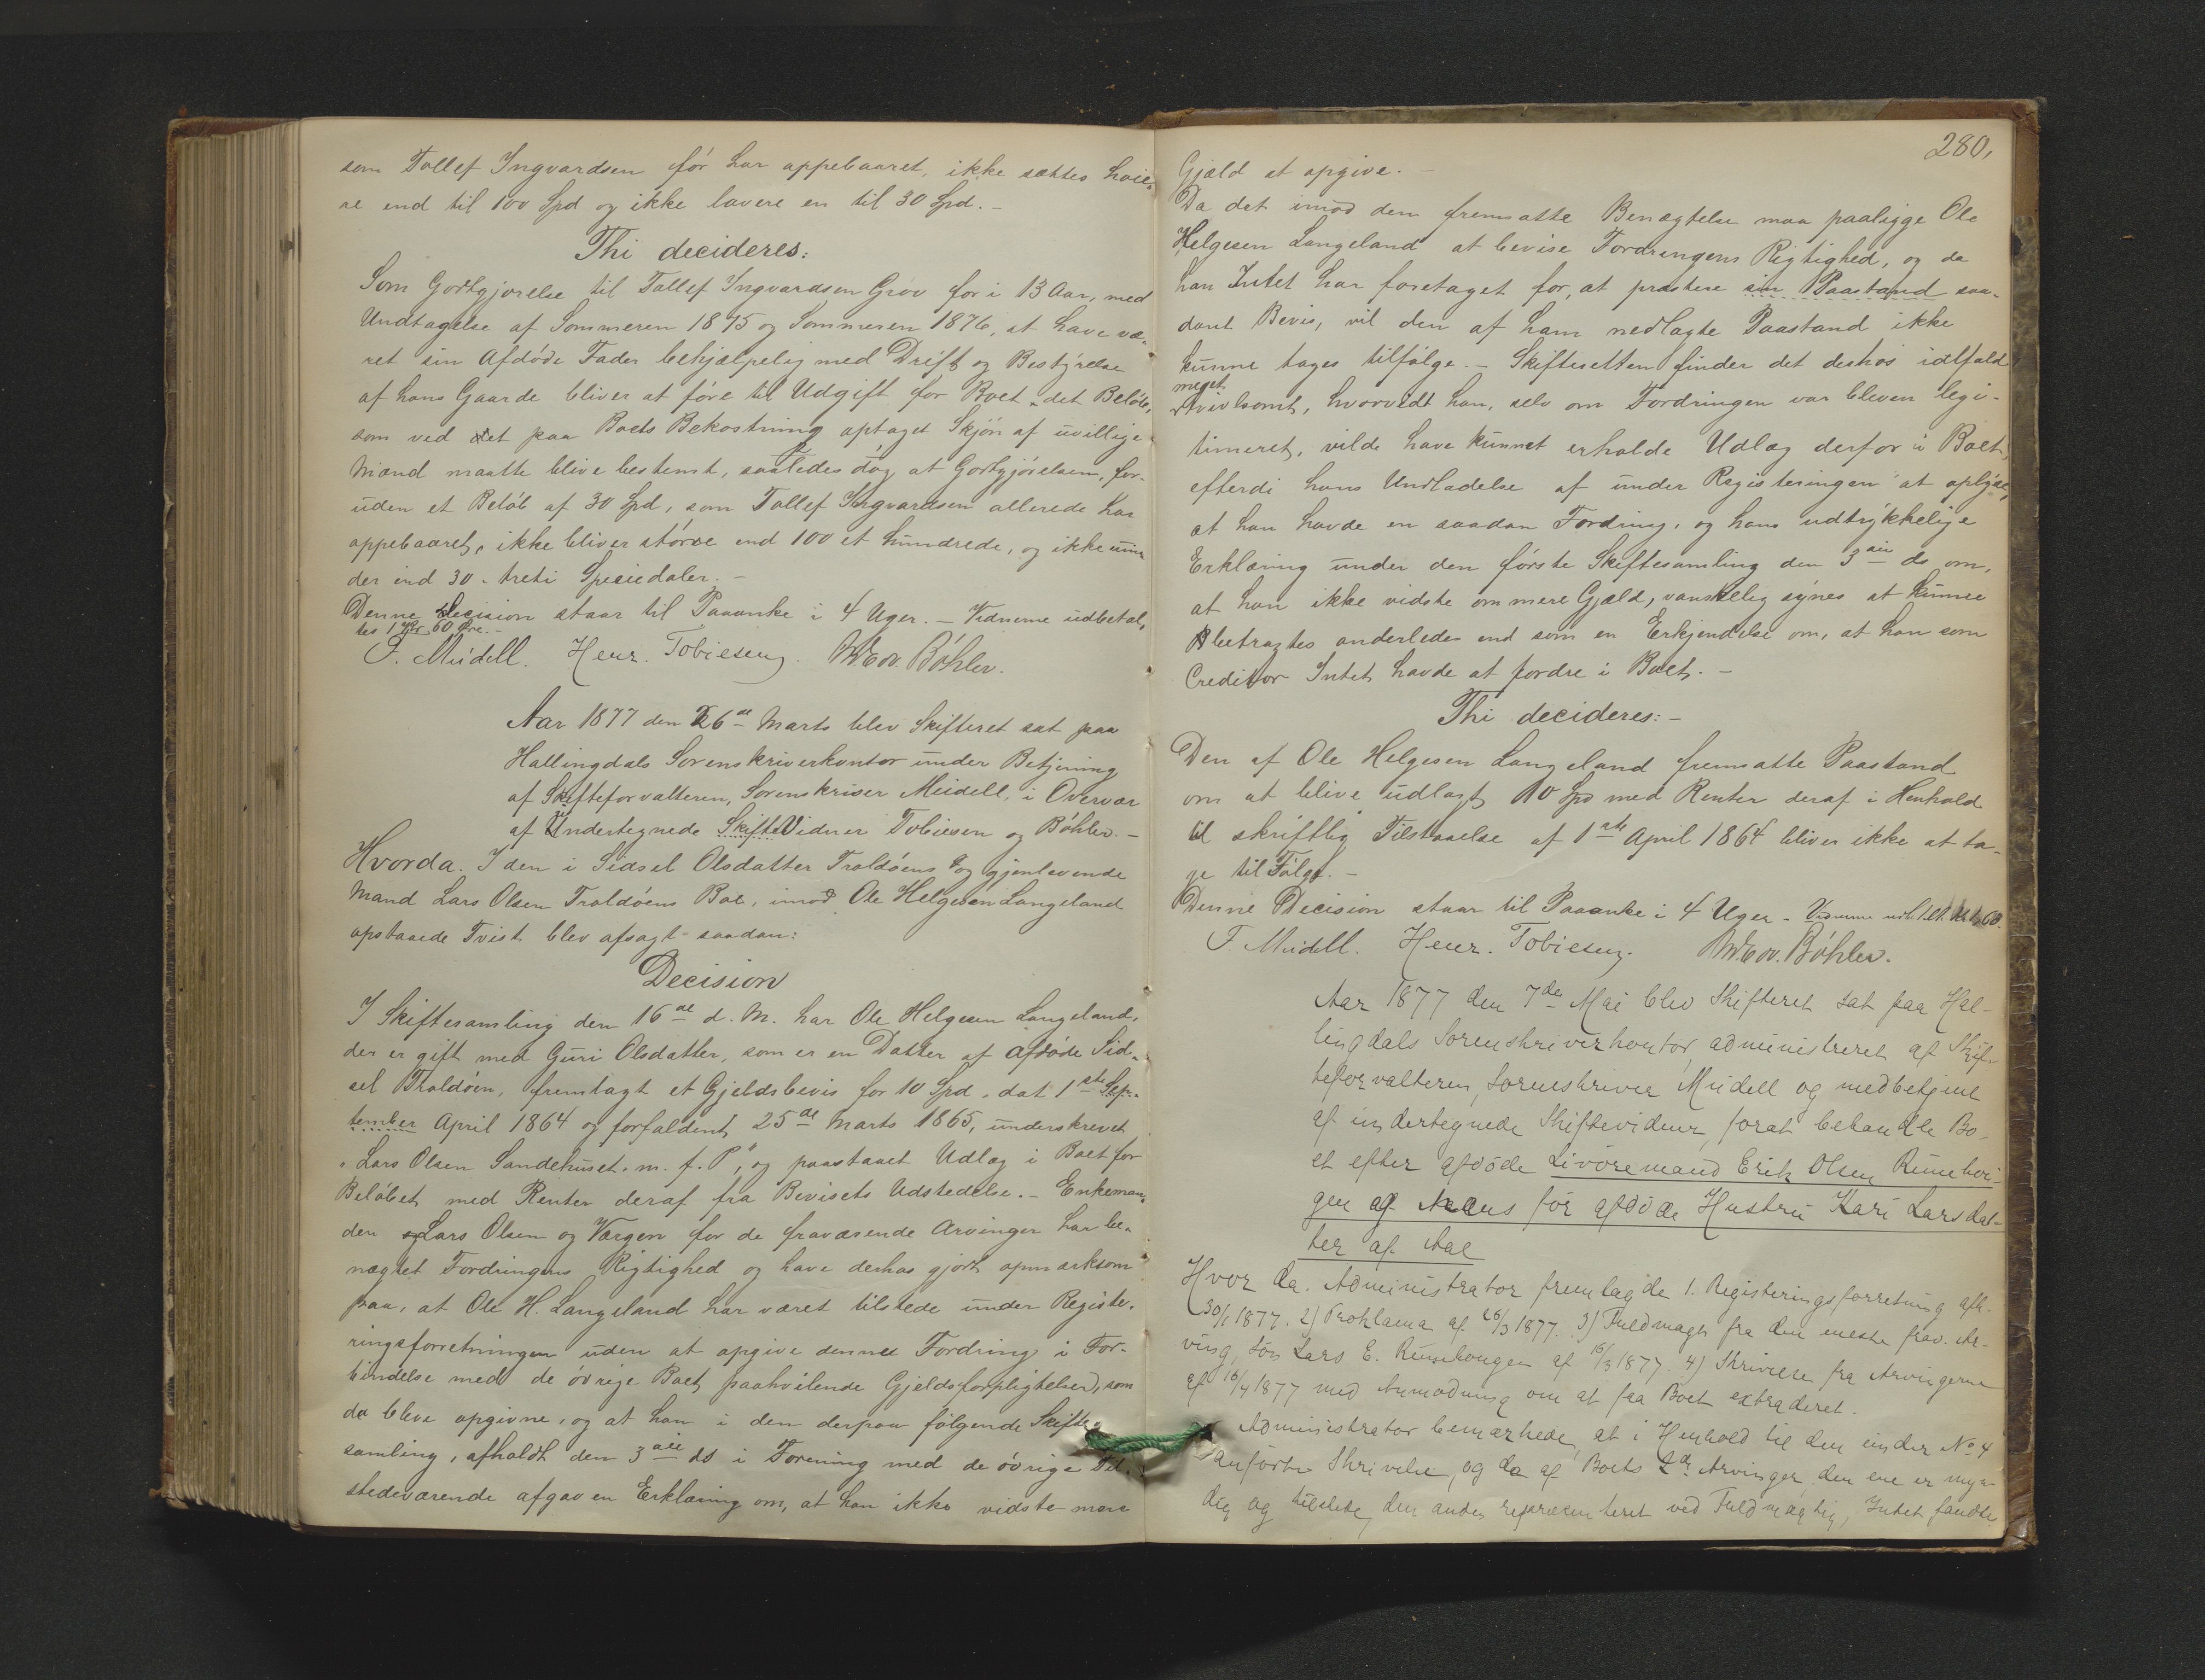 som Tollef Ingvardsen før har oppebaaret, ikke sættes høie-
re end til 100 Spd og ikke lavere en til 30 Spd. –
Thi decideres:
Som Godtgjørelse til Tollef Ingvardsen Grøv for i 13 Aar, med
Undtagelse af Sommeren 1875 og Sommeren 1876, at have væ-
ret sin Afdøde Fader behjælpelig med Drift og Bestyrelse
af hans Gaarde bliver at føre til Udgift for Boet det Beløb,
som ved et paa Boets Bekostning optaget Skjøn af uvillige
Mænd maatte blive bestemt, saaledes dog at Godtgjørelsen, for-
uden et Beløb af 30 Spd, som Tollef Ingvardsen allerede har
oppebaaret, ikke bliver større end 100 et hundrede, og ikke min
der end 30 treti Speciedaler. –
Denne Decision staar til Paaanke i 4 Uger. – Vidnerne udbetal-
tes 1 Kr 60 Øre. –
F. Meidell. Henr. Tobiesen. Bøhler.
Aar 1877 den 26de Marts blev Skifteret sat paa
Hallingdals Sorenskriverkontor under Betjening
af Skifteforvalteren, Sorenskriver Meidell, i Overvær
af Undertegnede SkifteVidner Tobiesen og Bøhler. –
Hvorda. I den i Sidsel Olsdatter Traldøens og gjenlevende
Mand Lars Olsen Traldøens Bo, imod Ole Helgesen Langeland
opstaaede Tvist blev afsagt saadan:
Decision
I Skiftesamling den 16de d. M. har Ole Helgesen Langeland,
der er gift med Guri Olsdatter, som er en Datter af afdøde Sid-
sel Traldøen, fremlagt et Gjeldsbevis for 10 Spd, dat 1ste Sep-
tember April 1864 og forfaldent 25de Marts 1865, underskrevet
"Lars Olsen Sandehuset m. f. P", og paastaaet Udlæg i Boet for
Beløbet med Renter deraf fra Bevisets Udstedelse. – Enkeman-
den Lars Olsen og Værgen for de fraværende Arvinger har be-
nægtet Fordringens Rigtighed og have derhos gjort opmærksom
paa, at Ole H. Langeland har været tilstede under Registe-
ringsforretningen uden at opgive denne Fordring i For-
bindelse med de øvrige Boet paahvilende Gjeldsforpligtelser, som
da bleve opgivne, og at han i den derpaa følgende Skifte-
samling, afholdt den 3die ds i Forening med de øvrige Til-
stedeværende afgav en Erklæring om, at han ikke vidste mere
280.
Gjæld at opgive. –
Da det imod den fremsatte Benægtelse maa paaligge Ole
Helgesen Langeland at bevise Fordringens Rigtighed, og da
han Intet har foretaget for, at præstere sin Paastand saa-
dant Bevis, vil den af ham nedlagte Paastand ikke
kunne tages tilfølge. – Skifteretten finder det deshos ialfald
meget
tvivlsomt, hvorvidt han, selv om Fordringen var bleven legi-
timeret, vilde have kunnet erholde Udlæg derfor i Boet,
efterdi hans Undladelse af under Registeringen at oplyse,
at han havde en saadan Fordring, og hans udtrykkelige
Erklæring under den første Skiftesamling den 3die ds om,
at han ikke vidste om mere Gjæld, vanskelig synes at kunne
betragtes anderledes end som en Erkjendelse om, at han som
Creditor Intet havde at fordre i Boet. –
Thi decideres: –
Den af Ole Helgesen Langeland fremsatte Paastand
om at blive udlagt 10 Spd med Renter deraf i Henhold
til skriftlig Tilstaaelse af 1ste April 1864 bliver ikke at ta-
ge til Følge. –
Denne Decision staar til Paaanke i 4 Uger. Vidnerne udbetalt
F. Meidell. Henr. Tobiesen. Bøhler.
Aar 1877 den 7de Mai blev Skifteret sat paa Hal-
lingdals Sorenskriverkontor, administreret af Skif-
teforvalteren, Sorenskriver Meidell og medbetjent
af undertegnede Skiftevidner, forat behandle Bo-
et efter afdøde Livøremand Erik Olsen Runehou-
gen og Hans før afdøde Hustru Kari Larsdat-
ter af Aal
Hvor da. Administrator fremlagde 1. Registeringsforretning afh.
30/1 1877. 2) Proklama af 26/3 1877. 3) Fuldmagt fra den eneste frav. Ar-
ving, Søn Lars E. Runehougen af 16/3 1877. 4) Skrivelse fra Arvingerne
af 16/4 1877 med Anmodning om at faa Boet extraderet.
Administrator bemærkede, at i Henhold til den under No 4
anførte Skrivelse, og da af Boets 2de Arvinger den ene er myn-
dig og tilstede, den anden repræsenteret ved Fuldmægtig, Intet fandtes